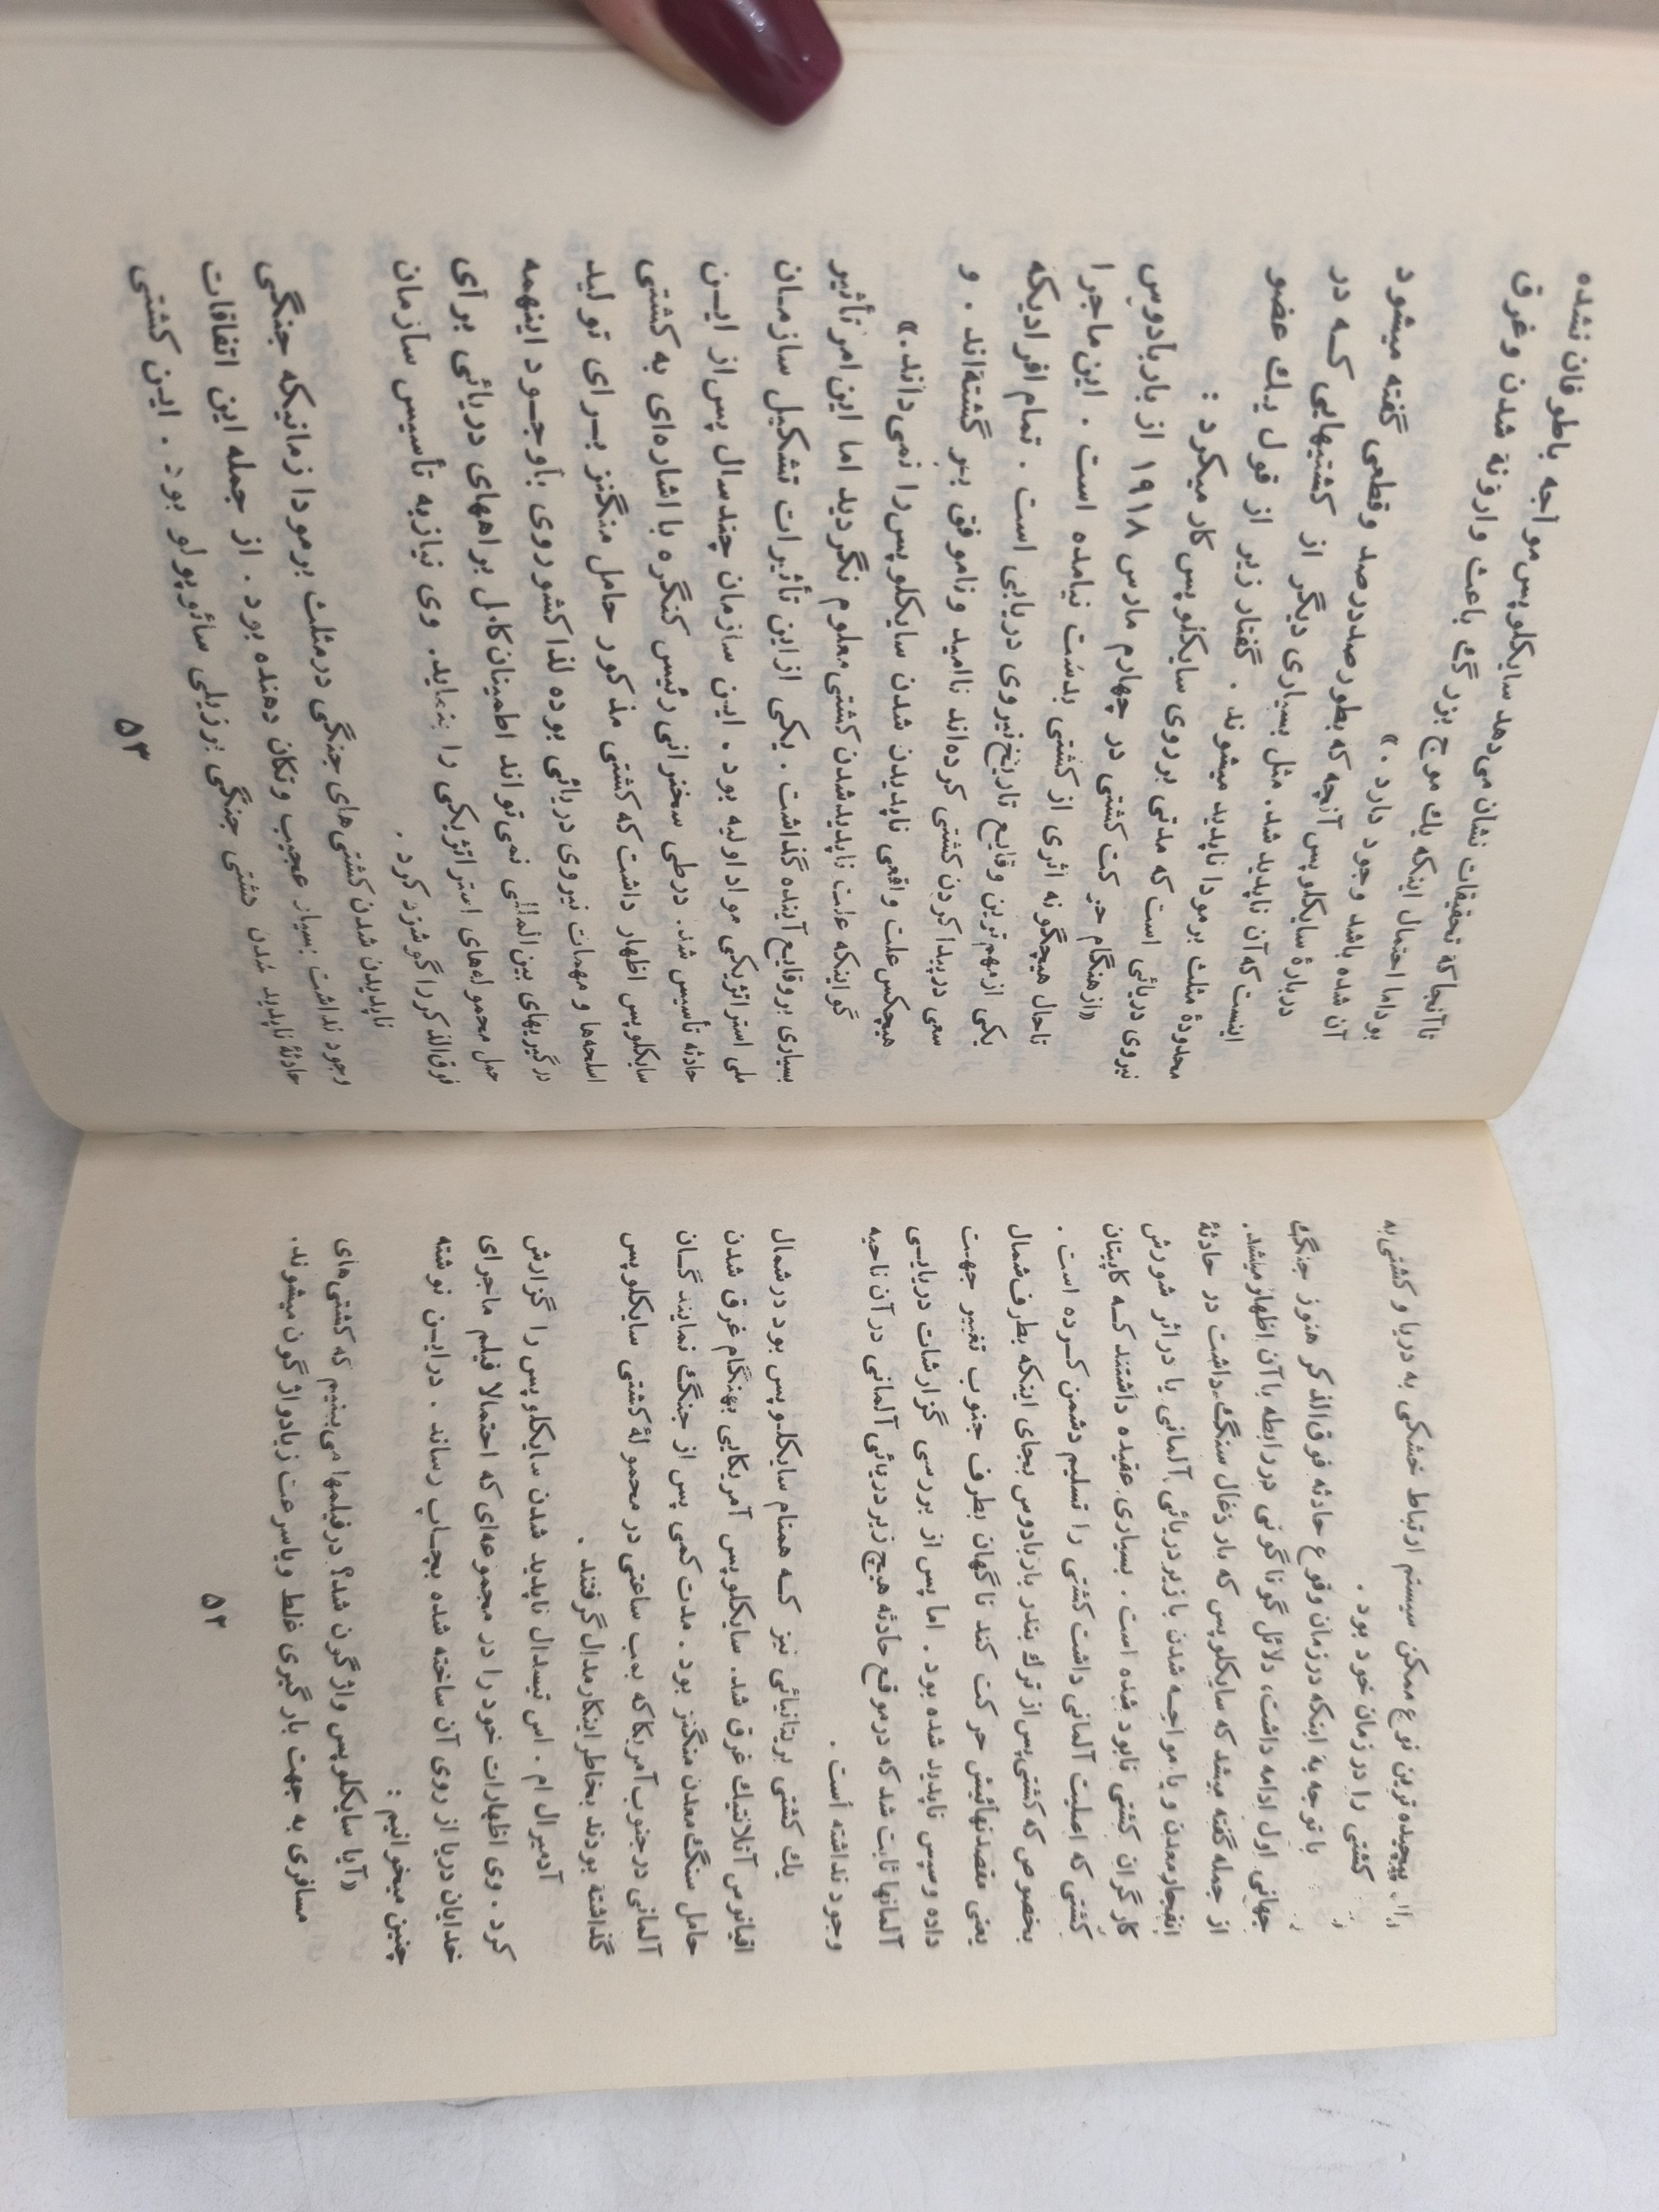 پیچیده‌ترین نوع ممکن سیستم ارتباط خشکی به دریا و کشتی به
کشتی را در زمان خود بود .
با توجه به اینکه در زمان وقوع حادثه فوق‌الذکر هنوز جنگ
جهانی اول ادامه داشت، دلائل گوناگونی در رابطه با آن اظهار میشد.
از جمله گفته میشد که سایکلوپس که بار ذغال سنگ داشت در حادثهٔ
انفجار معدن و یا مواجه شدن با زیردریائی آلمانی یا در اثر شورش
کارگران کشتی نابود شده است . بسیاری عقیده داشتند که کاپیتان
کشتی که اصلیت آلمانی داشت کشتی را تسلیم دشمن کرده است .
بخصوص که کشتی پس از ترك بندر باربادوس بجای اینکه بطرف شمال
یعنی مقصد نهائیش حرکت کند ناگهان بطرف جنوب تغییر جهت
داده و سپس ناپدید شده بود . اما پس از بررسی گزارشات دریایی
آلمانها ثابت شد که در موقع حادثه هیچ زیردریائی آلمانی در آن ناحیه
وجود نداشته است .
یك کشتی بریتانیائی نیز که همنام سایکلوپس بود در شمال
اقیانوس آتلانتیك غرق شد. سایکلوپس آمریکایی بهنگام غرق شدن
حامل سنگ معدن منگنز بود . مدت کمی پس از جنگ نمایندگان
آلمانی در جنوب آمریکا که بمب ساعتی در محمولهٔ کشتی سایکلوپس
گذاشته بودند بخاطر اینکار مدال گرفتند .
آدمیرال ام . اس تیسدال ناپدید شدن سایکلوپس را گزارش
کرد . وی اظهارات خود را در مجموعه‌ای که احتمالا فیلم ماجرای
خدایان دریا از روی آن ساخته شده بچاپ رساند . در این نوشته
چنین میخوانیم :
«آیا سایکلوپس واژگون شد؟ در فیلمها می‌بینیم که کشتی‌های
مسافری به جهت بارگیری غلط و یا سرعت زیاد واژگون میشوند.
۵۲
تا آنجا که تحقیقات نشان می‌دهد سایکلوپس مواجه با طوفان نشده
بود اما احتمال اینکه یك موج بزرگ باعث وارونه شدن و غرق
آن شده باشد وجود دارد . »
دربارهٔ سایکلوپس آنچه که بطور صددرصد و قطعی گفته میشود
اینست که آن ناپدید شد. مثل بسیاری دیگر از کشتیهایی که در
محدودهٔ مثلث برمودا ناپدید میشوند . گفتار زیر از قول یك عضو
نیروی دریائی است که مدتی بر روی سایکلوپس کار میکرد :
«از هنگام حرکت کشتی در چهارم مارس ۱۹۱۸ از باربادوس
تاحال هیچگونه اثری از کشتی بدست نیامده است . این ماجرا
یکی از مهم‌ترین وقایع تاریخ نیروی دریایی است . تمام افرادیکه
سعی در پیدا کردن کشتی کرده‌اند ناامید و ناموفق برگشته‌اند . و
هیچکس علت واقعی ناپدیدن شدن سایکلوپس را نمی‌داند.»
گو اینکه علت ناپدید شدن کشتی معلوم نگردید اما این امر تأثیر
بسیاری بر وقایع آینده گذاشت . یکی از این تأثیرات تشکیل سازمان
ملی استراتژیکی مواد اولیه بود . این سازمان چند سال پس از این
حادثه تأسیس شد. در طی سخنرانی رئیس کنگره با اشاره‌ای به کشتی
سایکلوپس اظهار داشت که کشتی مذکور حامل منگنز برای تولید
اسلحه‌ها و مهمات نیروی دریائی بوده لذا کشوروی باوجود اینهمه
درگیریهای بین‌المللی نمی‌تواند اطمینان کامل براههای دریائی برای
حمل محموله‌های استراتژیکی را بنماید. وی نیاز به تأسیس سازمان
فوق‌الذکر را گوشزد کرد .
ناپدیدن شدن کشتی‌های جنگی در مثلث برمودا زمانیکه جنگی
وجود نداشت بسیار عجیب و تکان دهنده بود . از جمله این اتفاقات
حادثهٔ ناپدید شدن کشتی جنگی برزیلی سائوپولو بود . این کشتی
۵۳